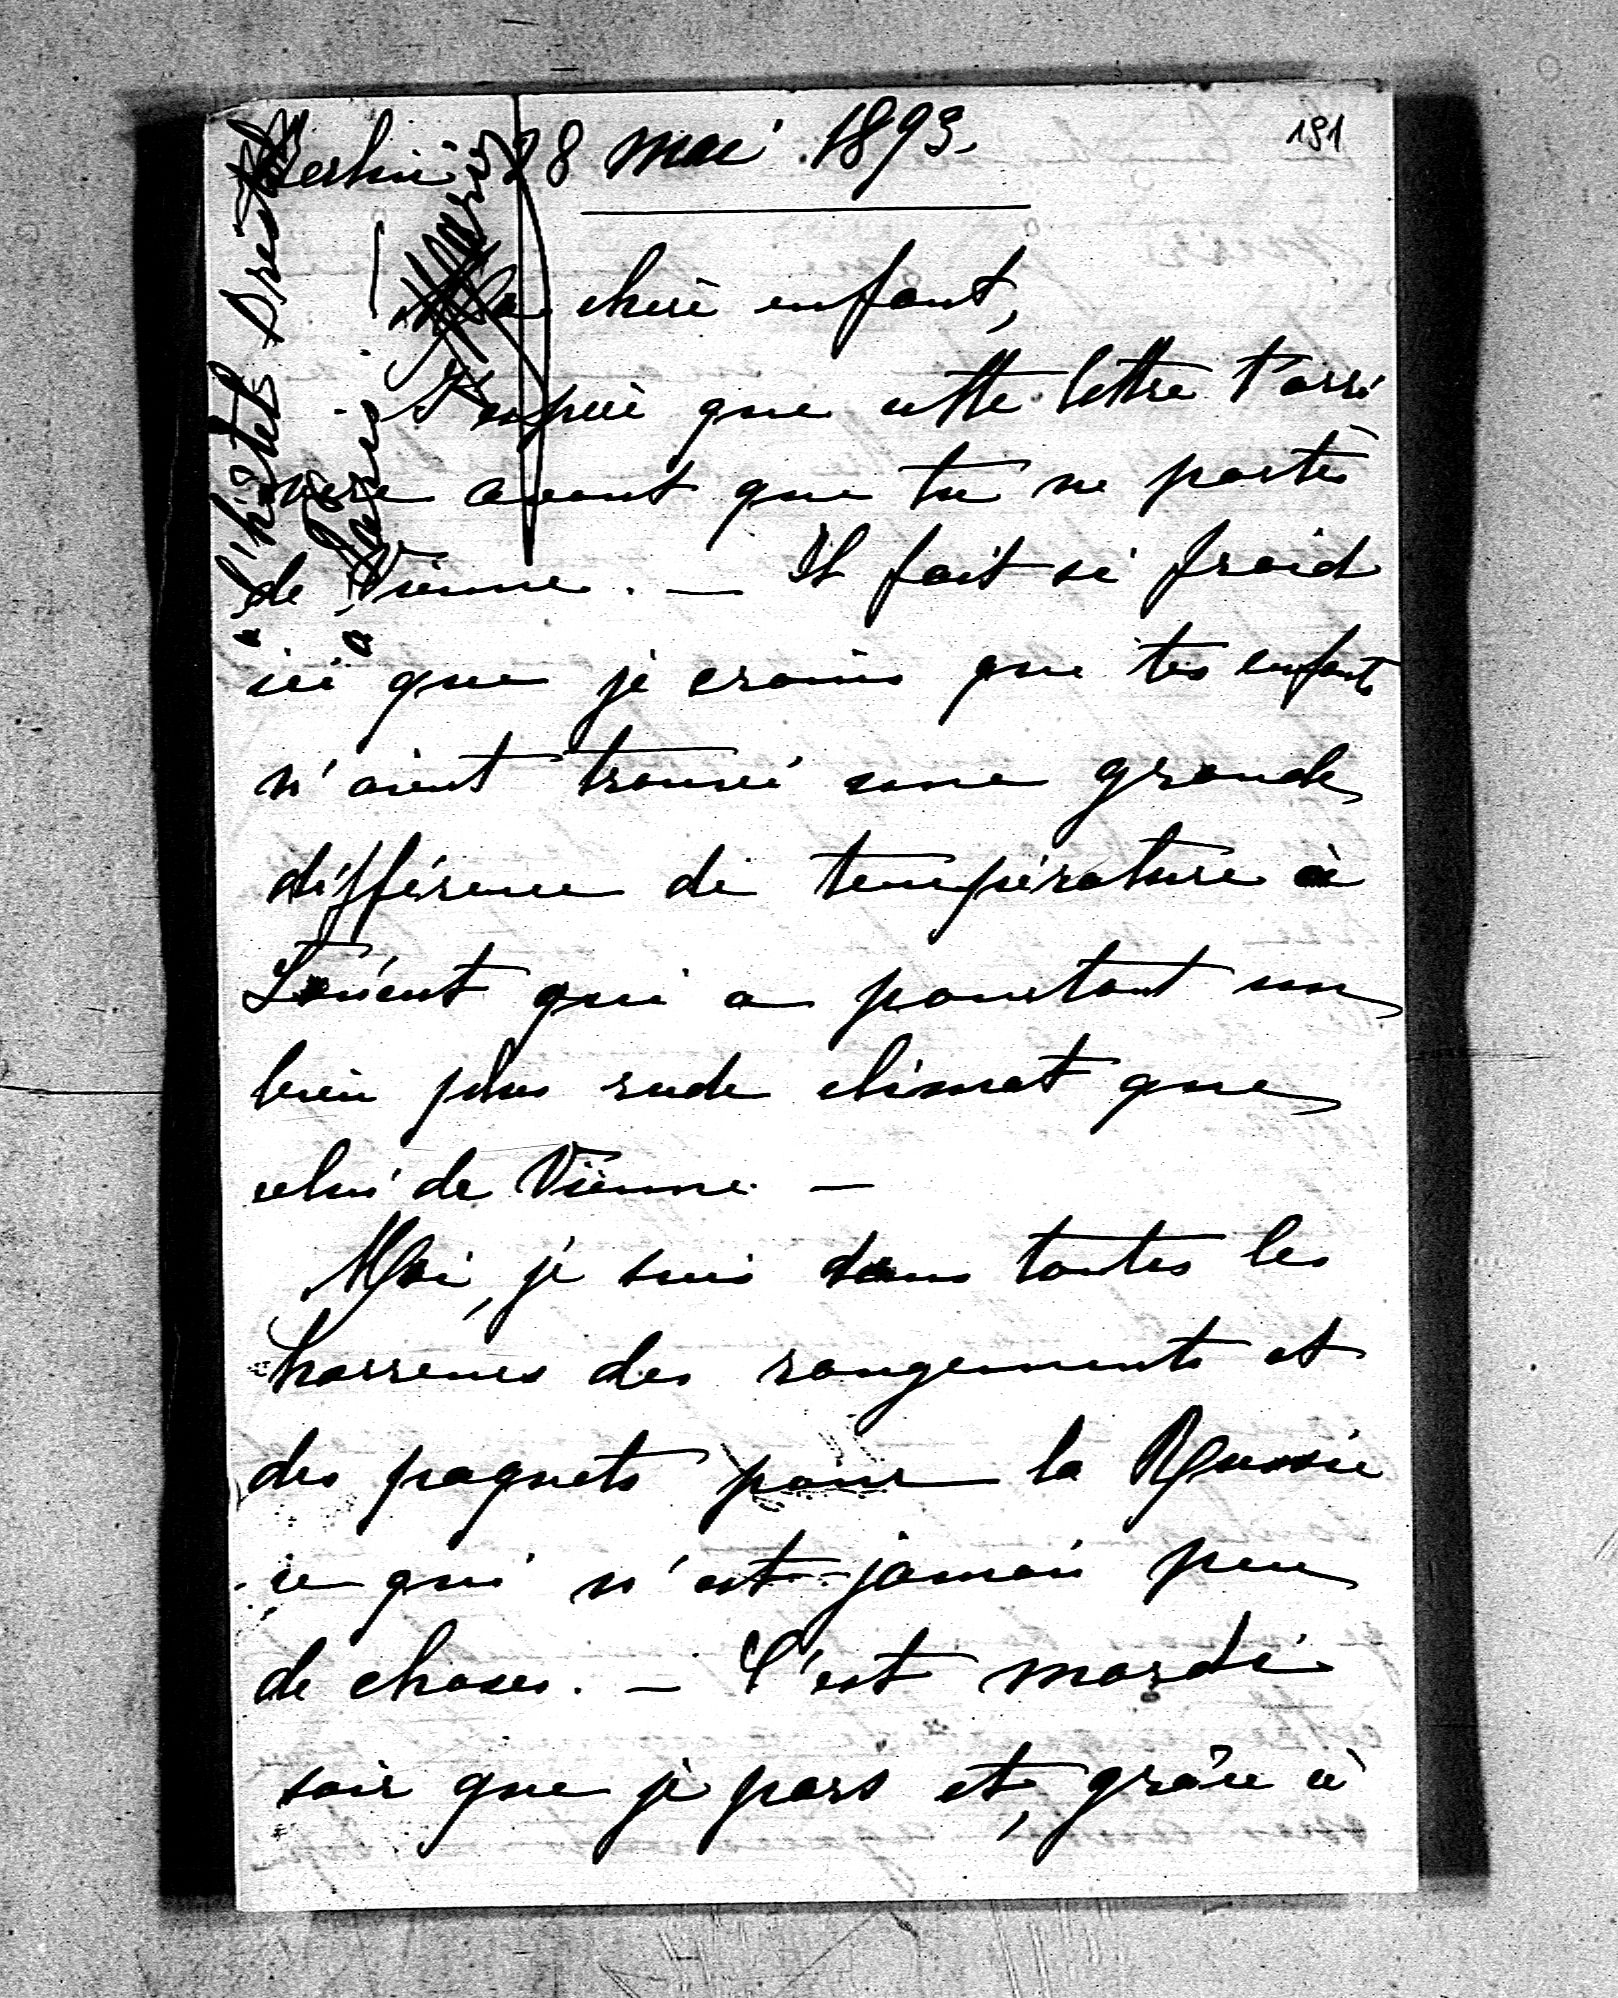 Berlin 28 mai 1893.
191
Ma chère enfant,
J'espère que cette lettre t'arri
vera avant que tu ne partes
de Vienne. — Il fait si froid
ici que je crains que tes enfants
n'aient trouvé une grande
différence de température à
qui a pourtant un
bien plus rude climat que
celui de Vienne. —
Moi, je suis dans toutes les
horreurs des rangements et
des paquets pour la Russie
ce qui n'est jamais peu
de choses. — C'est mardi
soir que je pars et, grâce à
à l'hôtel
à Paris